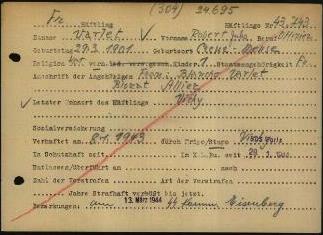 Fr. (304) 24695
Häftling Häftlings Nr. 43.743
Name Varlet Vorname Robert Beruf Offizier
Geburtsdatum 29.3.1901 Geburtsort Meuse
Religion verh. led. verw. gesch. Kinder 1 Staatsangehörigkeit Fr.
Anschrift der Angehörigen Frau: Blanche Varlet
Allier
Letzter Wohnort des Häftlings Vichy
Sozialversicherung
Verhaftet am 8.1.1943 durch Stapo Vichy
In Schutzhaft seit im K.L.Bu. seit 29.1.1944
Entlassen/Überführt am nach
Zahl der Vorstrafen Art der Vorstrafen
Jahre Strafhaft verbüßt bis jetzt.
Bemerkungen: am 13. März 1944 Eisenberg